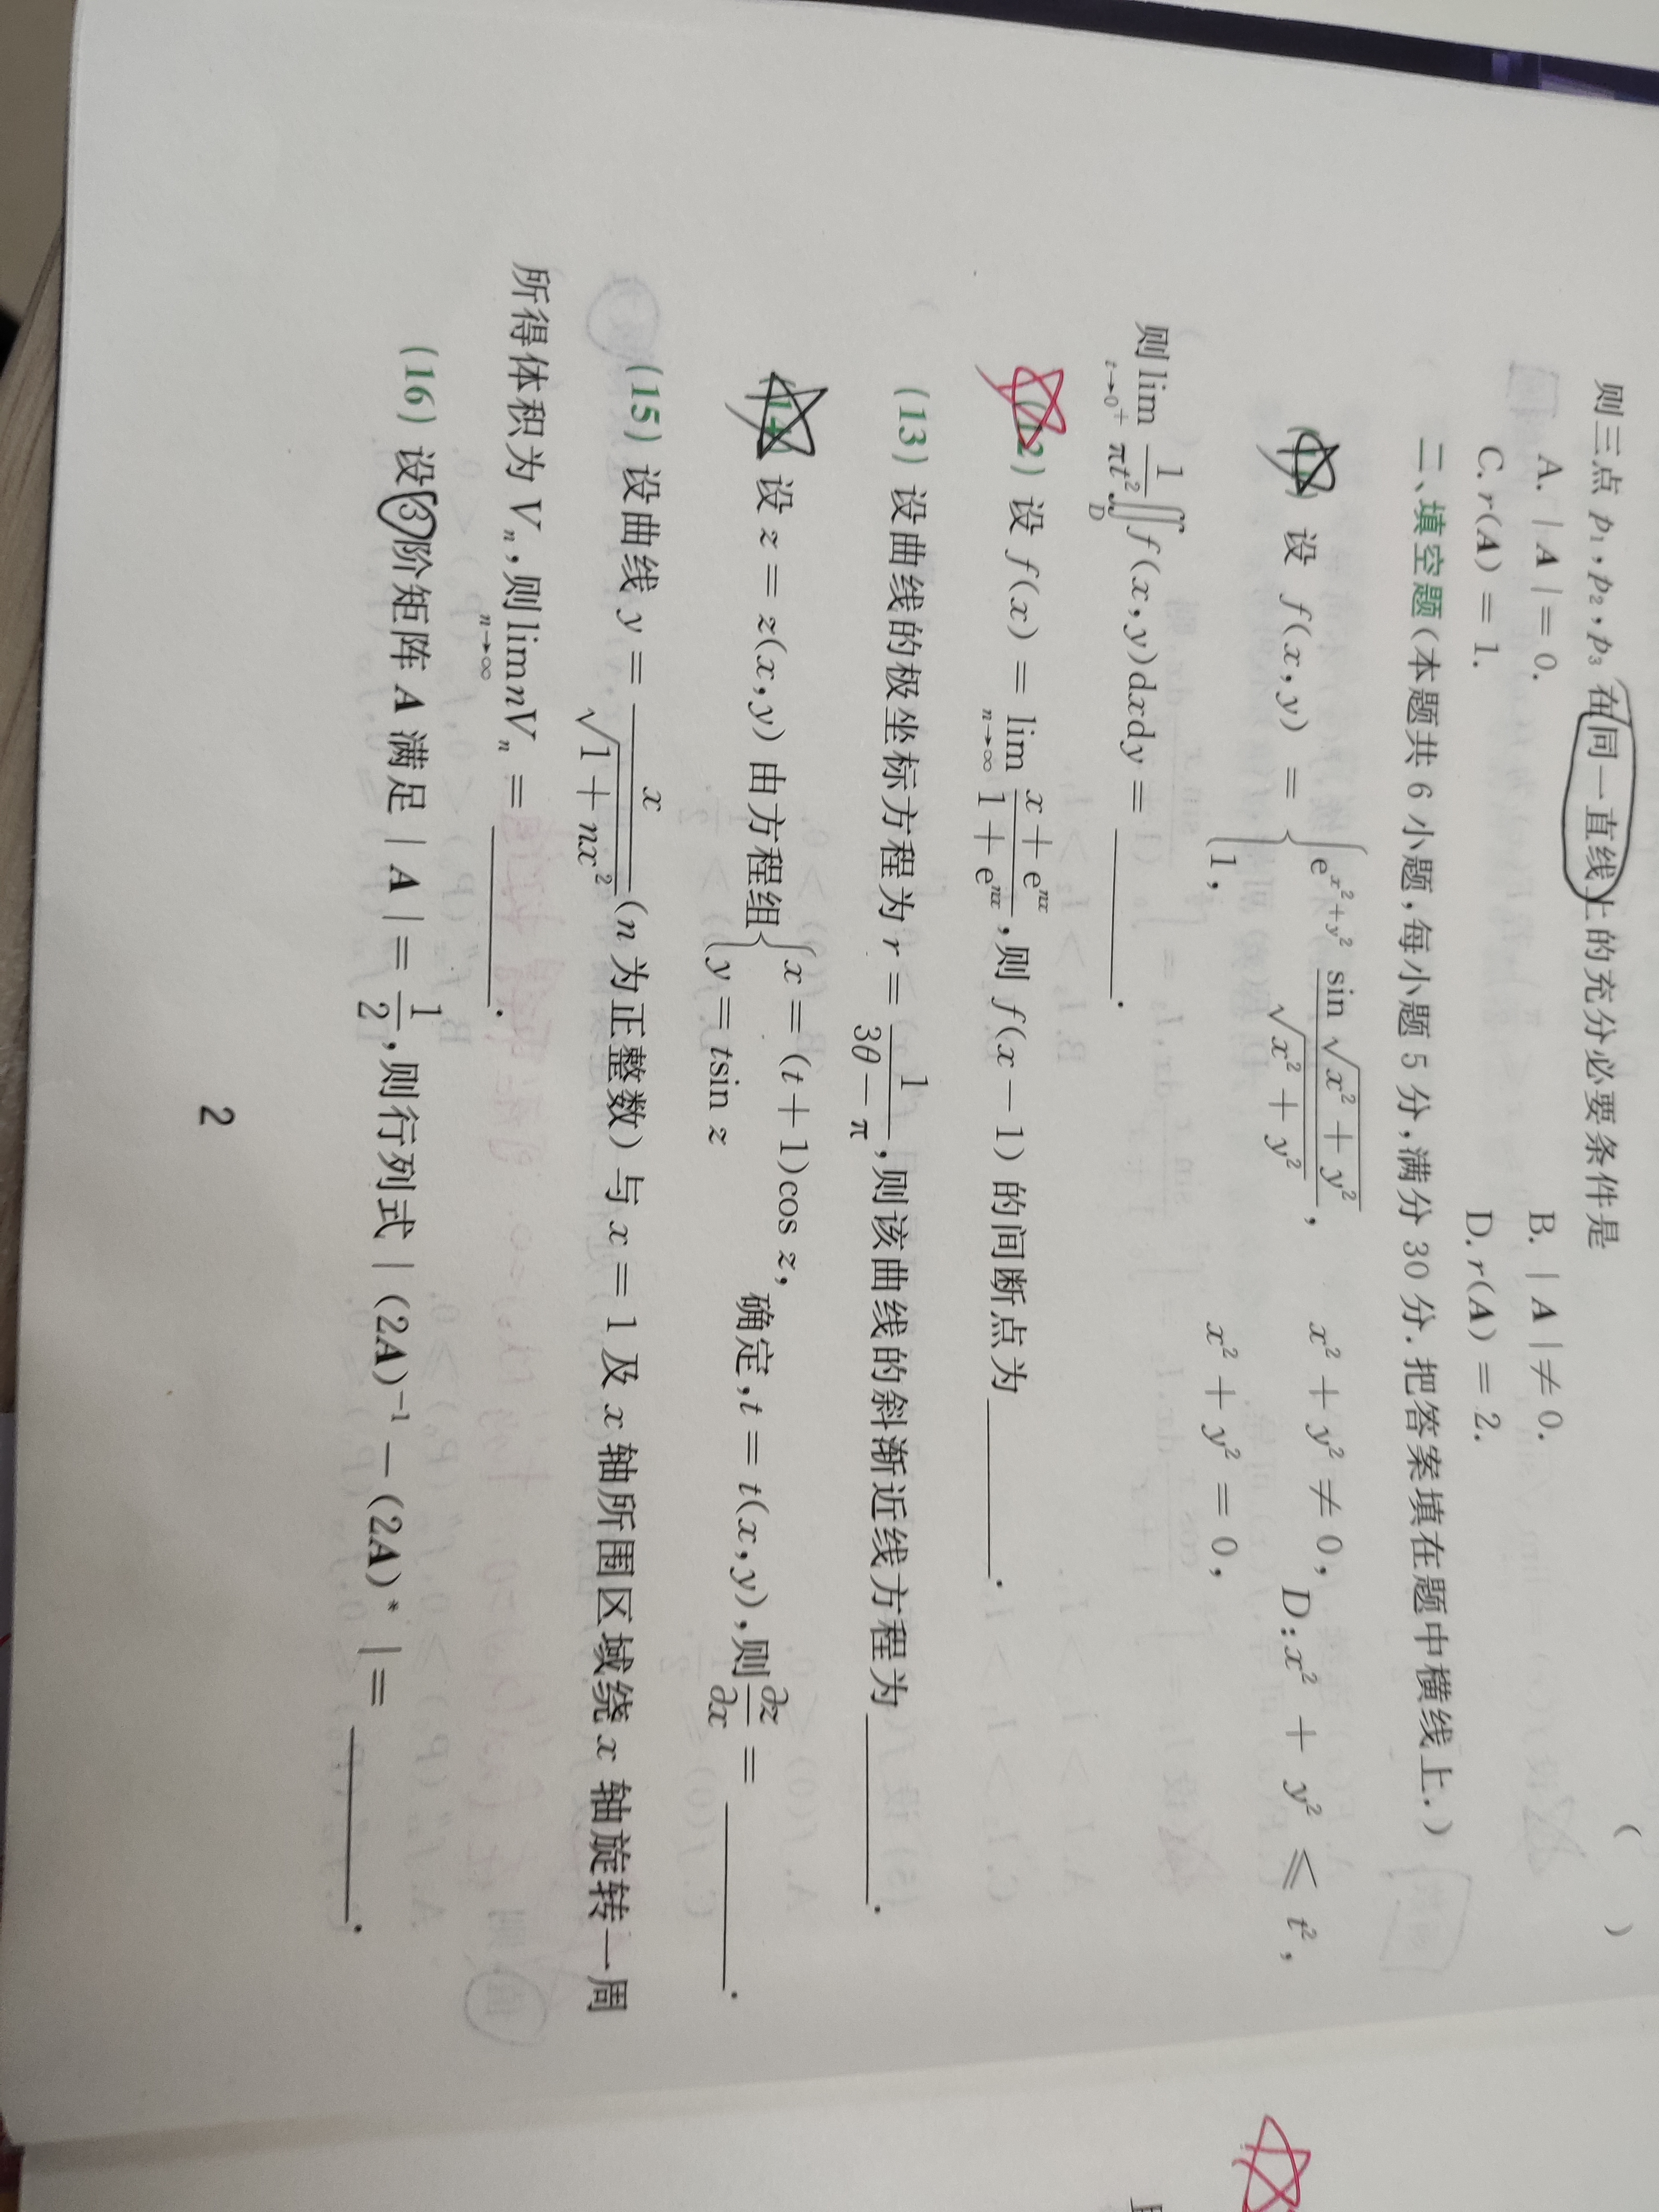 则三点 p₁,p₂,p₃ 在同一直线上的充分必要条件是 ( )
A. |A|=0. B. |A|≠0.
C. r(A)=1. D. r(A)=2.
二、填空题(本题共 6 小题,每小题 5 分,满分 30 分.把答案填在题中横线上.)
设 f(x,y) = { e^{x²+y²} \frac{sin √(x²+y²)}{√(x²+y²)}, x²+y²≠0, 1, x²+y²=0, D:x²+y²≤t²,
则 lim_{t→0⁺} \frac{1}{πt²} ∬_D f(x,y)dxdy = ______.
(12) 设 f(x) = lim_{n→∞} \frac{x+e^{nx}}{1+e^{nx}},则 f(x-1) 的间断点为 ______.
(13) 设曲线的极坐标方程为 r = \frac{1}{3θ-π},则该曲线的斜渐近线方程为 ______.
(14) 设 z = z(x,y) 由方程组 { x=(t+1)cos z, y=tsin z 确定,t=t(x,y),则 \frac{∂z}{∂x} = ______.
(15) 设曲线 y = \frac{x}{√(1+nx²)} (n 为正整数) 与 x=1 及 x 轴所围区域绕 x 轴旋转一周
所得体积为 Vₙ,则 lim_{n→∞} nVₙ = ______.
(16) 设 3 阶矩阵 A 满足 |A| = \frac{1}{2},则行列式 |(2A)⁻¹-(2A)*| = ______.
2